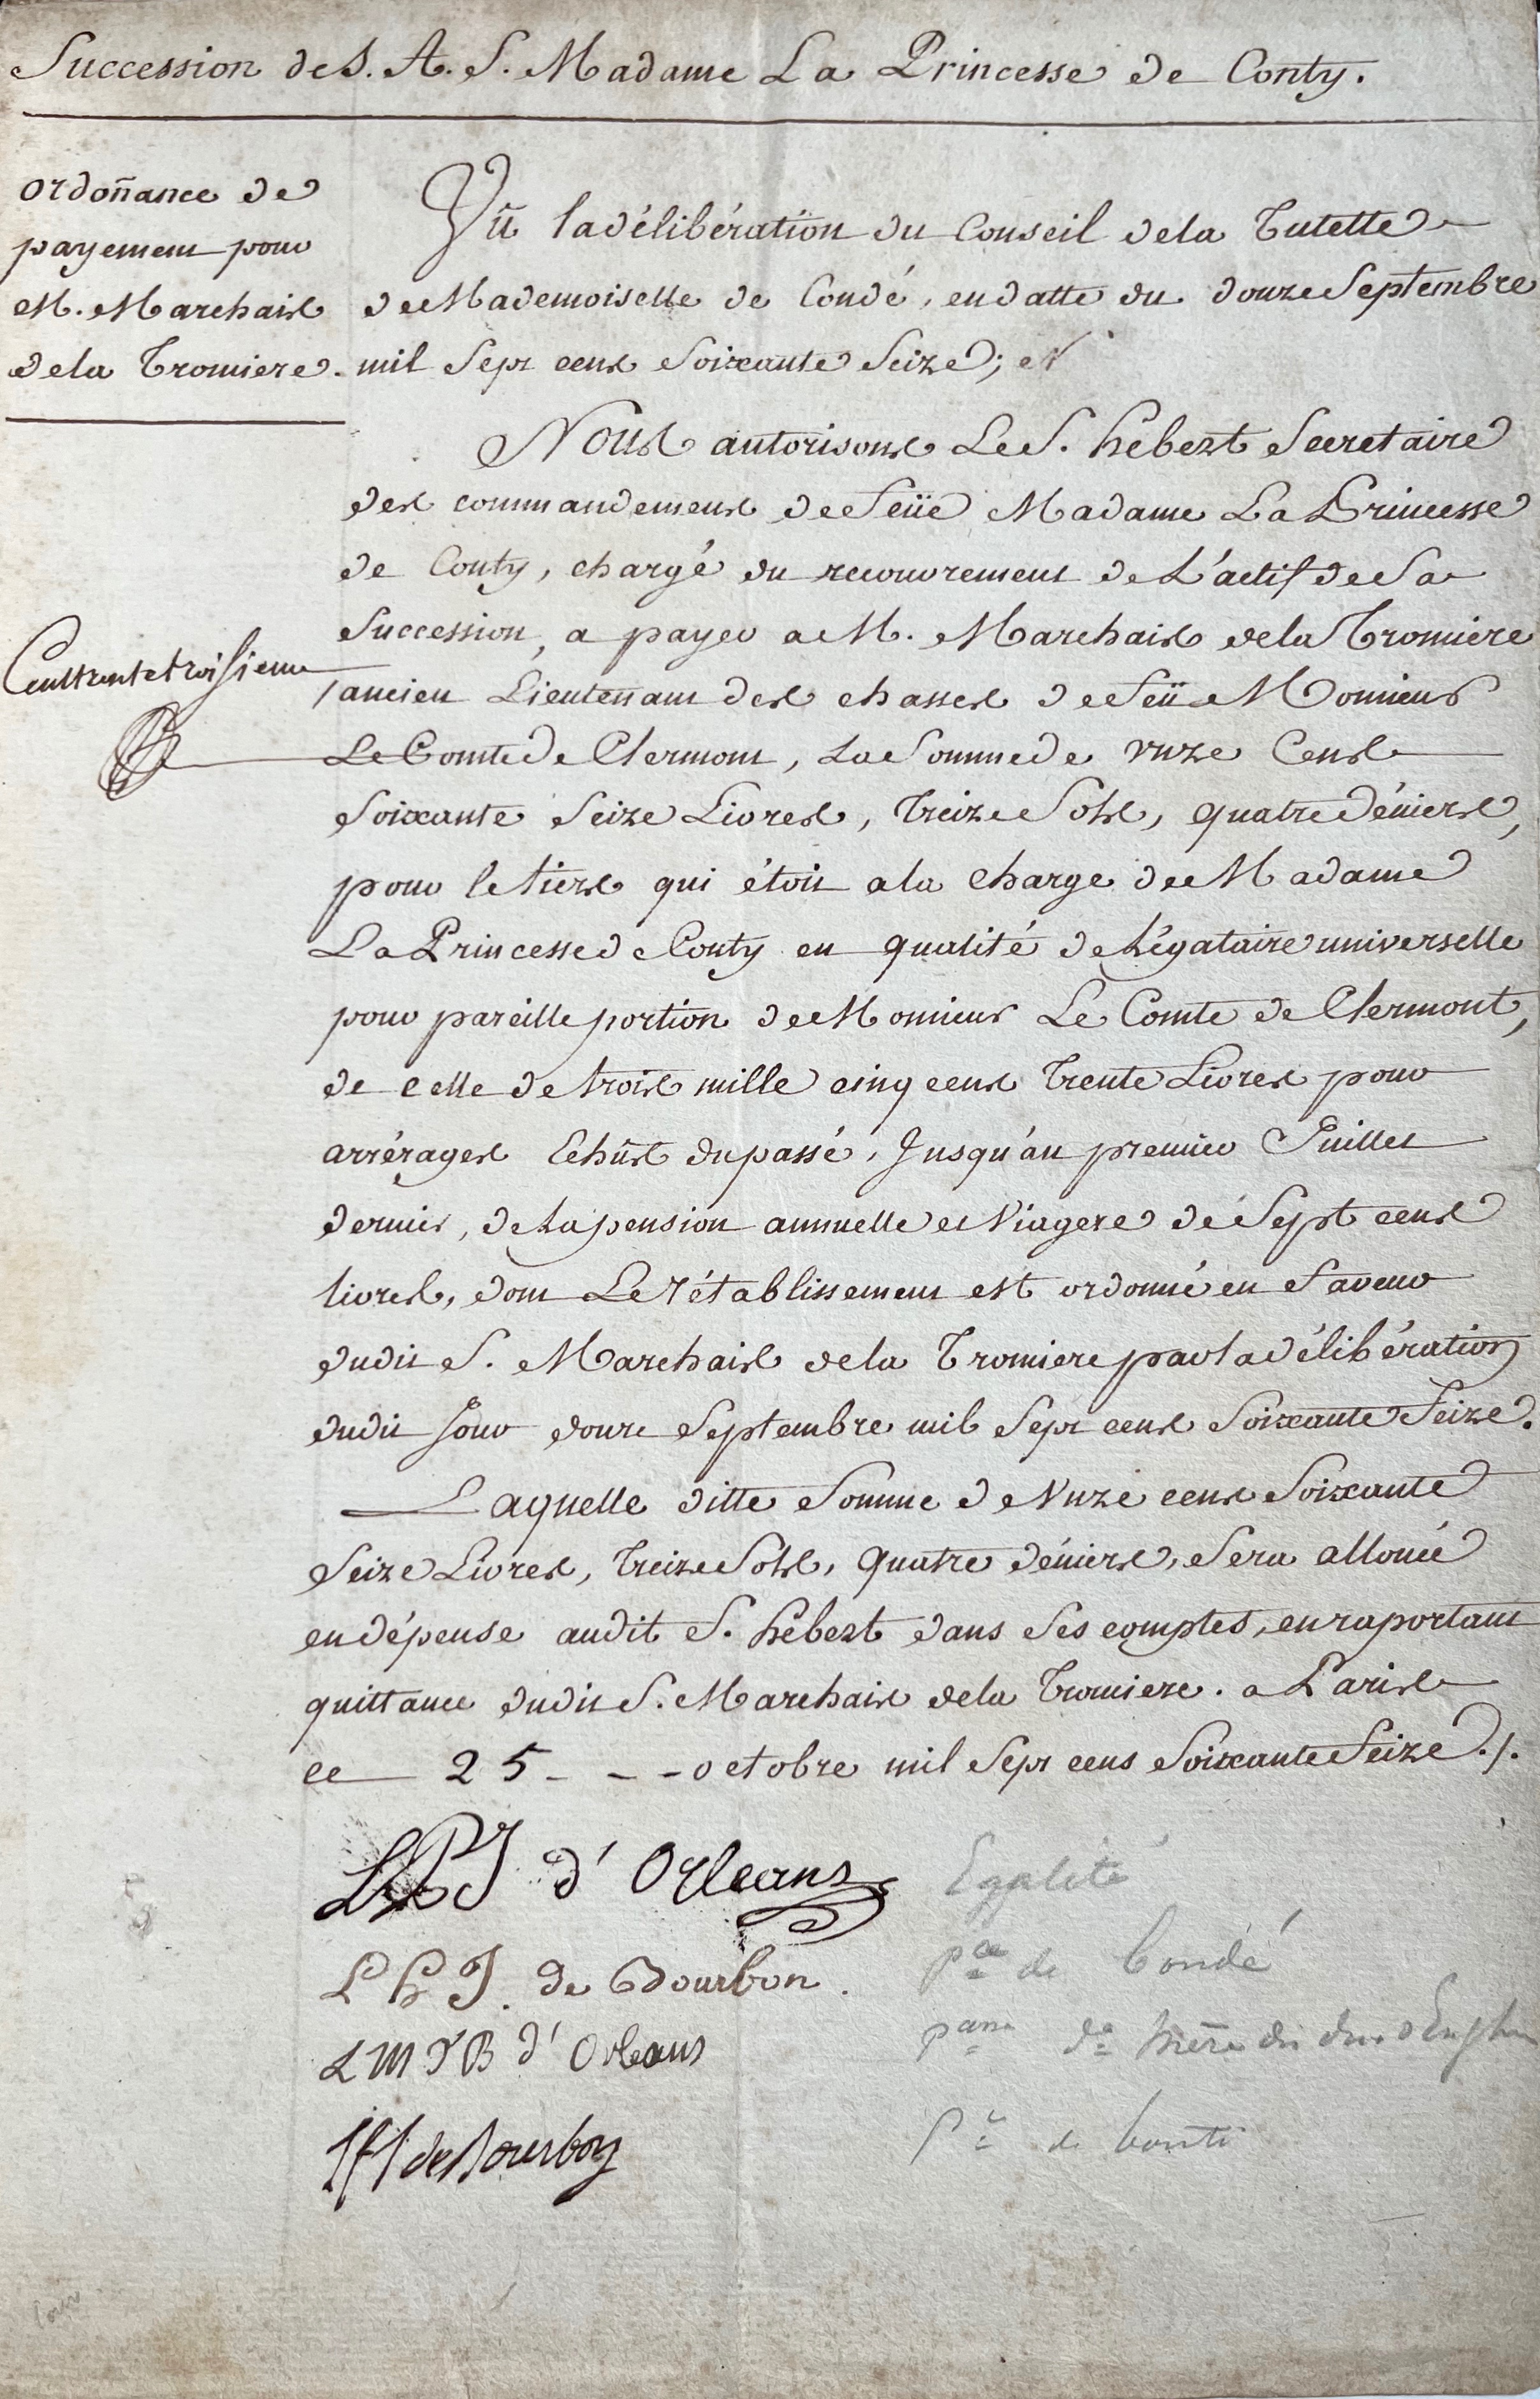 Succession de S. A. S. Madame La Princesse de Conty.
ordoñance de
payement pour
M. Marchais
dela Tromiere.
Vû la délibération du Conseil dela Tutelle
de Mademoiselle de Condé, en datte du douze Septembre
mil Sept cens Soixante Seize; et
Nous autorisons Le S. hébert Secretaire
des commandemens de feüe Madame La Princesse
de Conty, chargé du recouvrement de L'actif de Sa
Succession, a payer a M. Marchais dela Tromiere
Centtrentetroisieme
ancien Lieutenant des chasses de feü Monsieur
Le Comte de Clermont, La Somme de vnze Cens
Soixante Seize Livres, Treize Sols, quatre déniers,
pour le tiers qui étoit a la charge de Madame
La Princesse de Conty en qualité de Légataire universelle
pour pareille portion de Monsieur Le Comte de Clermont,
de celle de trois mille cinq cens Trente Livres pour
arrérages Echûs du passé, Jusqu'au premier Juillet
dernier, de La pension annuelle et Viagere de Sept cens
livres, dont Le rétablissement est ordonné en faveur
dudit S. Marchais dela Tromiere par la délibération
dudit Jour douze Septembre mil Sept cens Soixante Seize.
Laquelle ditte Somme de Vnze cens Soixante
Seize Livres, Treize Sols, quatre déniers, Sera allouée
en dépense audit S. hébert dans Ses comptes, en raportant
quittance dudit S. Marchais dela Tromiere. a Paris
ce 25 - - - octobre mil Sept cens Soixante Seize ./.
LPJ d'Orleans
Egalité
L h J. de Bourbon.
Pce de Condé
L M T B d'Orleans
mère du duc d'Enghien
LFJ de Bourbon
Pce de Conti